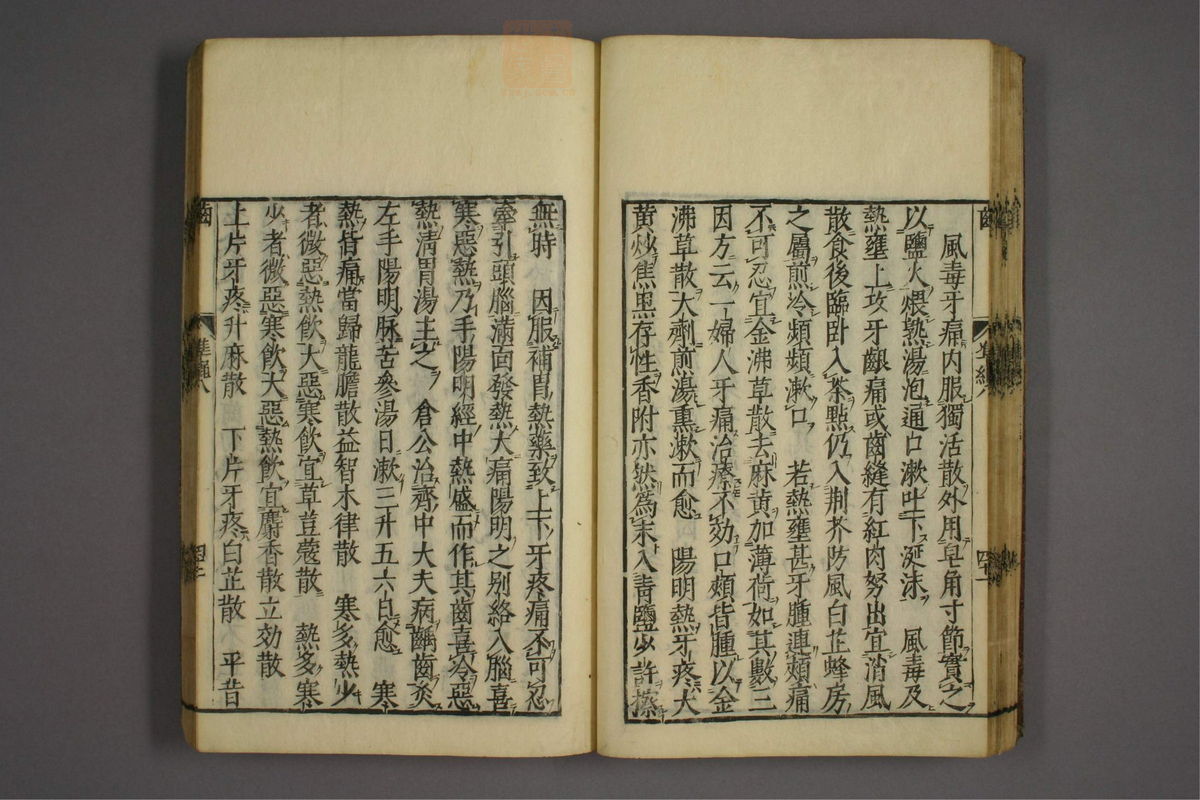 風毒牙痛内服獨活散外用皂角寸節實之
以鹽火煨熟湯泡通口漱吐下涎沫　風毒及
熱壅上攻牙齦痛或齒縫有紅肉努出宜消風
散食後臨卧入茶點仍入荆芥防風白芷蜂房
之屬煎冷頻頻漱口　若熱壅甚牙腫連頰痛
不可忍宜金沸草散去麻黄加薄荷如其數三
因方云一婦人牙痛治療不効口頰皆腫以金
沸草散大劑煎湯熏漱而愈　陽明熱牙疼大
黄炒焦黒存性香附亦然爲末入青鹽少許擦
無時　因服補胃熱藥致上下牙疼痛不可忍
牽引頭腦滿面發熱大痛陽明之别絡入腦喜
寒惡熱乃手陽明經中熱盛而作其齒喜冷惡
熱清胃湯主之　倉公治齊中大夫病齲齒灸
左手陽明脉苦參湯日漱三升五六日愈　寒
熱皆痛當歸龍膽散益智木律散　寒多熱少
者微惡熱飲大惡寒飲宜草荳蔻散　熱多寒
少者微惡寒飲大惡熱飲宜麝香散立効散
上片牙疼升麻散　下片牙疼白芷散　平昔
齒
準繩八